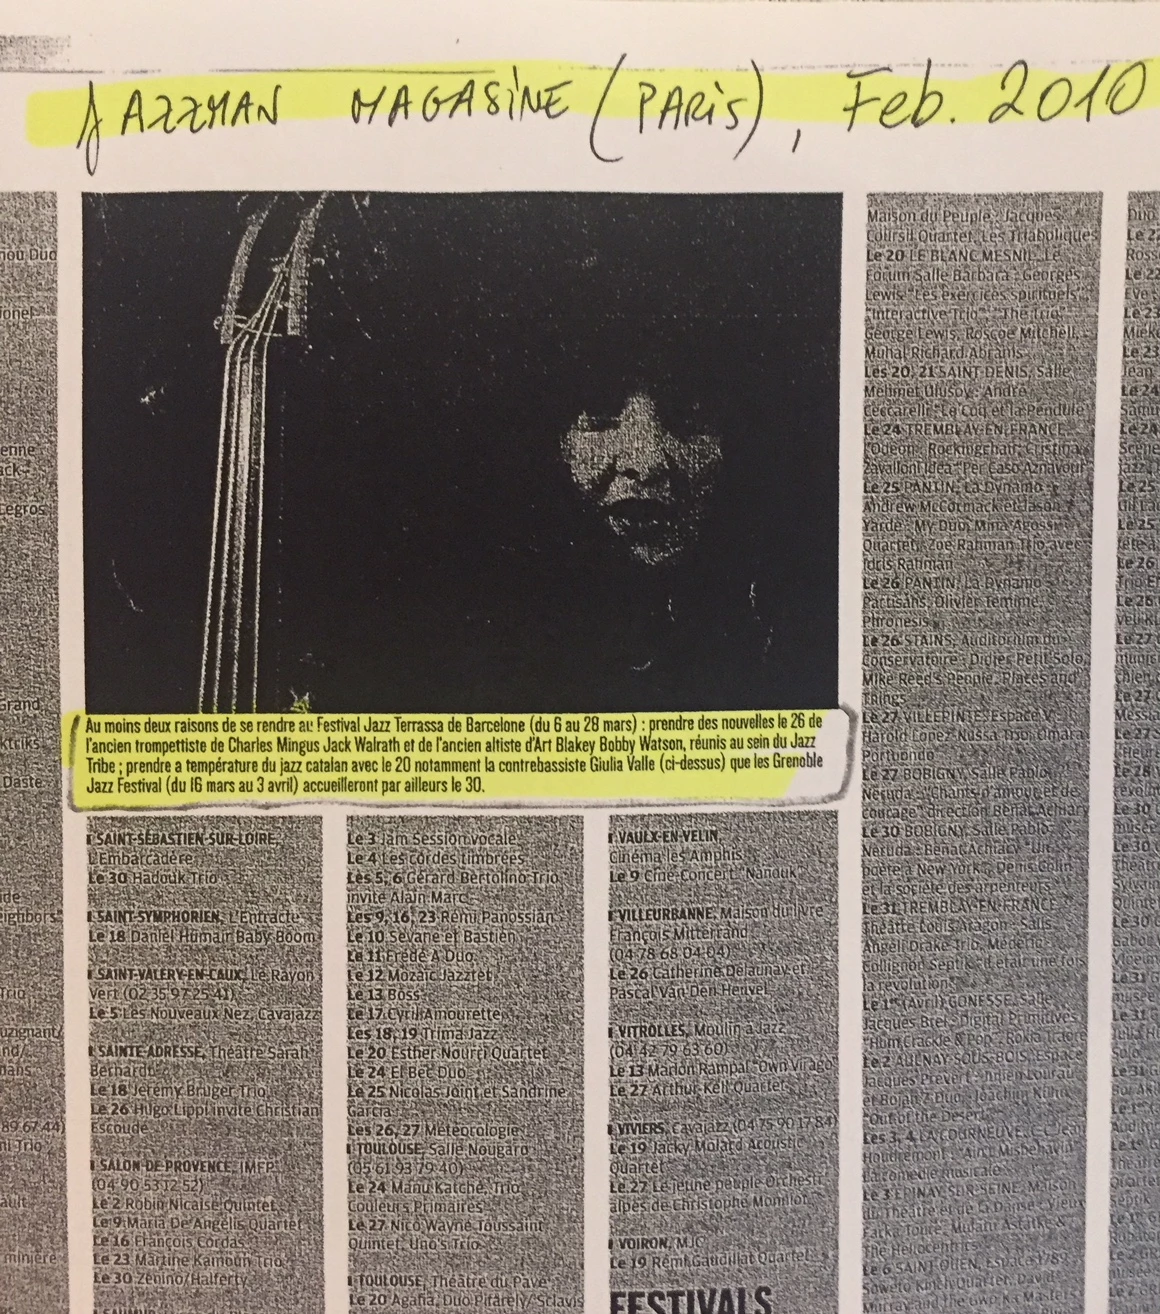 JAZZMAN MAGASINE (PARIS), Feb. 2010
Au moins deux raisons de se rendre au Festival Jazz Terrassa de Barcelone (du 6 au 28 mars) : prendre des nouvelles le 26 de
l'ancien trompettiste de Charles Mingus Jack Walrath et de l'ancien altiste d'Art Blakey Bobby Watson, réunis au sein du Jazz
Tribe ; prendre a température du jazz catalan avec le 20 notamment la contrebassiste Giulia Valle (ci-dessus) que les Grenoble
Jazz Festival (du 16 mars au 3 avril) accueilleront par ailleurs le 30.
nou Duo
ionel
enne
ack
Legros
Grand
ktriks
Daste
de
eighbors"
Trio
uzignant/
nd/
hans
89 67 44)
ni Trio
ault
minière
SAINT-SÉBASTIEN-SUR-LOIRE,
L'Embarcadère
Le 30 Hadouk Trio
SAINT-SYMPHORIEN, L'Entracte
Le 18 Daniel Humair Baby Boom
SAINT-VALERY-EN-CAUX, Le Rayon
Vert (02 35 97 25 41)
Le 5 Les Nouveaux Nez, Cavajazz
SAINTE-ADRESSE, Théâtre Sarah
Bernardt
Le 18 Jeremy Bruger Trio
Le 26 Hugo Lippi invite Christian
Escoudé
SALON-DE-PROVENCE, IMFP
(04 90 53 12 52)
Le 2 Robin Nicaise Quintet
Le 9 Maria De Angelis Quartet
Le 16 François Cordas
Le 23 Martine Kamoun Trio
Le 30 Zenino/Halferty
Le 3 Jam Session vocale
Le 4 Les cordes timbrées
Les 5, 6 Gérard Bertolino Trio
invite Alain Marc
Les 9, 16, 23 Rémi Panossian
Le 10 Sevane et Bastien
Le 11 Frédé A Duo
Le 12 Mozaic Jazztet
Le 13 Boss
Le 17 Cyril Amourette
Les 18, 19 Trima Jazz
Le 20 Esther Nourri Quartet
Le 24 El Bec Duo
Le 25 Nicolas Joint et Sandrine
Garcia
Les 26, 27 Météorologie
TOULOUSE, Salle Nougaro
(05 61 93 79 40)
Le 24 Manu Katché, Trio
Couleurs Primaires
Le 27 Nico Wayne Toussaint
Quintet, Uno's Trio
TOULOUSE, Théâtre du Pavé
Le 20 Agafia, Duo Pifarély/Sclavis
VAULX-EN-VELIN,
Cinéma les Amphis
Le 9 Ciné-Concert "Nanouk"
VILLEURBANNE, Maison du livre
François Mitterrand
(04 78 68 04 04)
Le 26 Catherine Delaunay et
Pascal Van Den Heuvel
VITROLLES, Moulin à Jazz
(04 42 79 63 60)
Le 13 Marion Rampal "Own Virago"
Le 27 Arthur Kell Quartet
VIVIERS, Cavajazz (04 75 90 17 84)
Le 19 Jacky Molard Acoustic
Quartet
Le 27 Le jeune peuple Orchestr
alpes de Christophe Monniot
VOIRON, MJC
Le 19 Rémi Gaudillat Quartet
FESTIVALS
Maison du Peuple : Jacques
Coursil Quartet, Les Triaboliques
Le 20 LE BLANC MESNIL, Le
Forum Salle Barbara : Georges
Lewis "Les exercices spirituels",
"Interactive Trio" "The Trio"
George Lewis, Roscoe Mitchell,
Muhal Richard Abrams
Les 20, 21 SAINT DENIS, Salle
Mehmet Ulusoy : André
Ceccarelli "Le Coq et la Pendule"
Le 24 TREMBLAY-EN-FRANCE,
"Odéon : Rockingchair, Cristina
Zavalloni Idea "Per Caso Aznavour"
Le 25 PANTIN, La Dynamo :
Andrew McCormack et Jason
Yarde : My Duo, Mina Agossi
Quartet, Zoe Rahman Trio avec
Idris Rahman
Le 26 PANTIN, La Dynamo :
Partisans, Olivier Temime,
Phronesis
Le 26 STAINS, Auditorium du
Conservatoire : Didier Petit Solo,
Mike Reed's People, Places and
Things
Le 27 VILLEPINTE, Espace V :
Harold Lopez Nussa Trio, Omara
Portuondo
Le 27 BOBIGNY, Salle Pablo
Neruda : "Chants d'amour et de
courage" direction Beñat Achiary
Le 30 BOBIGNY, Salle Pablo
Neruda : Beñat Achiary "Un
poète à New York", Denis Colin
et la société des arpenteurs
Le 31 TREMBLAY-EN-FRANCE,
Théâtre Louis Aragon : Salis,
Angeli Drake Trio, Médéric
Collignon Septik "Il était une fois
la révolution"
Le 1er (Avril) GONESSE, Salle
Jacques Brel : Digital Primitives
"Hum Crackle & Pop", Rokia Traoré
Le 2 AULNAY-SOUS-BOIS, Espace
Jacques Prévert : Julien Lourau
et Bojan Z Duo, Joachim Kühn
"Out of the Desert"
Les 3, 4 LA COURNEUVE, C. Jean
Houdremont : "Ain't Misbehavin'
la comédie musicale"
Le 3 EPINAY-SUR-SEINE, Maison
du Théâtre et de la Danse : Vieux
Farka Touré, Mulatu Astatke &
The Heliocentrics
Le 6 SAINT OUEN, Espace 1789 :
Soweto Kinch Quartet, David
Murray and the Gwo Ka Masters